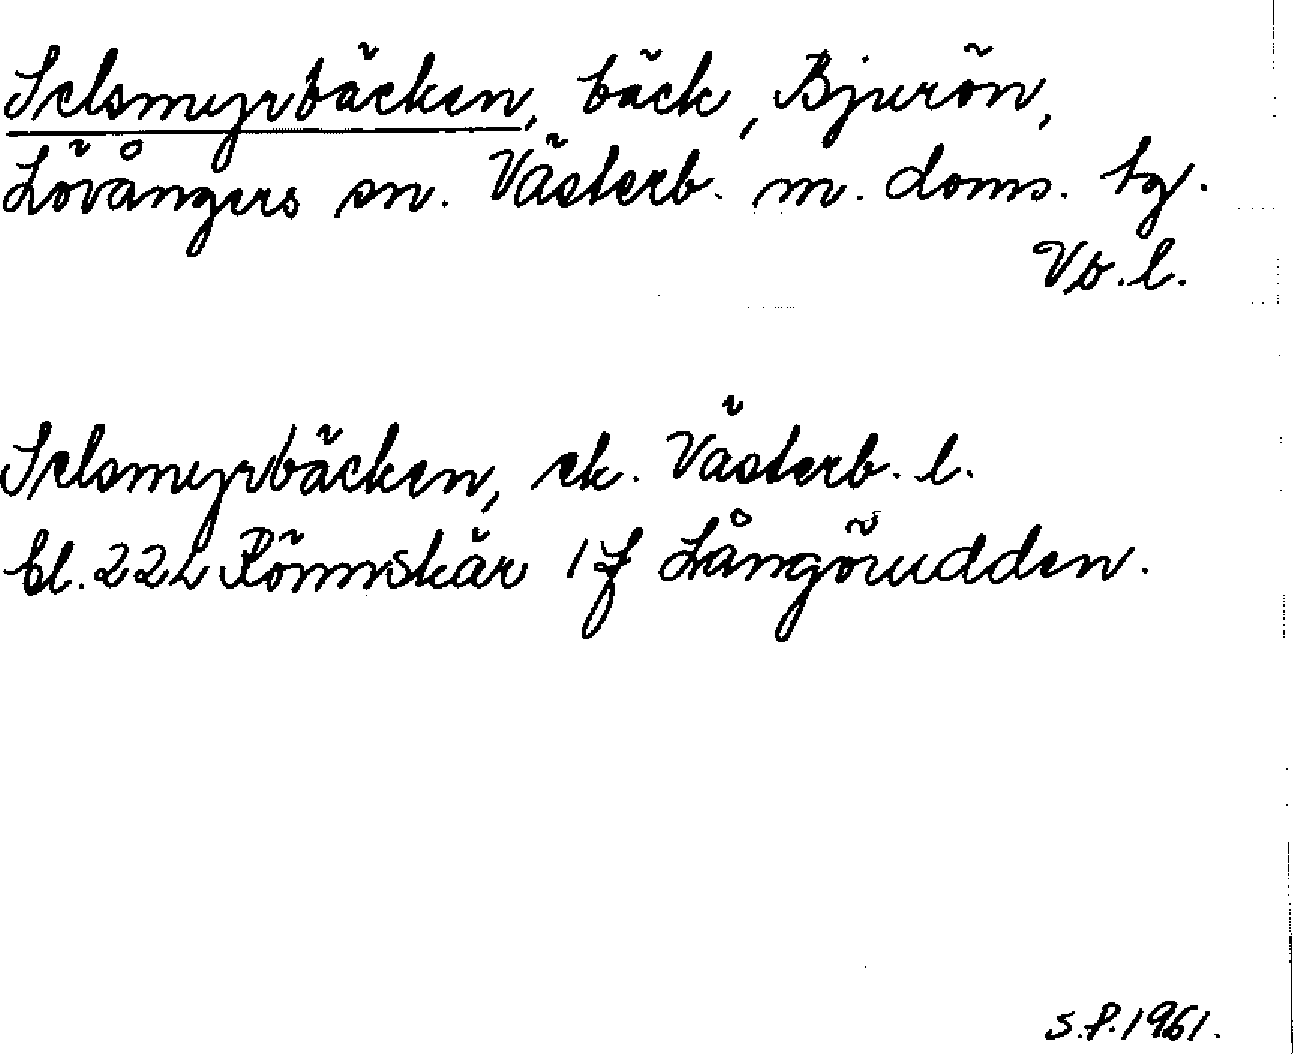 Selsmyrbäcken, bäck, Bjurön,
Lövångers sn. Västerb. m. doms. tg.
Vb. l.
Selsmyrbäcken, ek. Västerb. l.
bl. 222 Rönnskär 1 f Långörudden.
S.P. 1961.